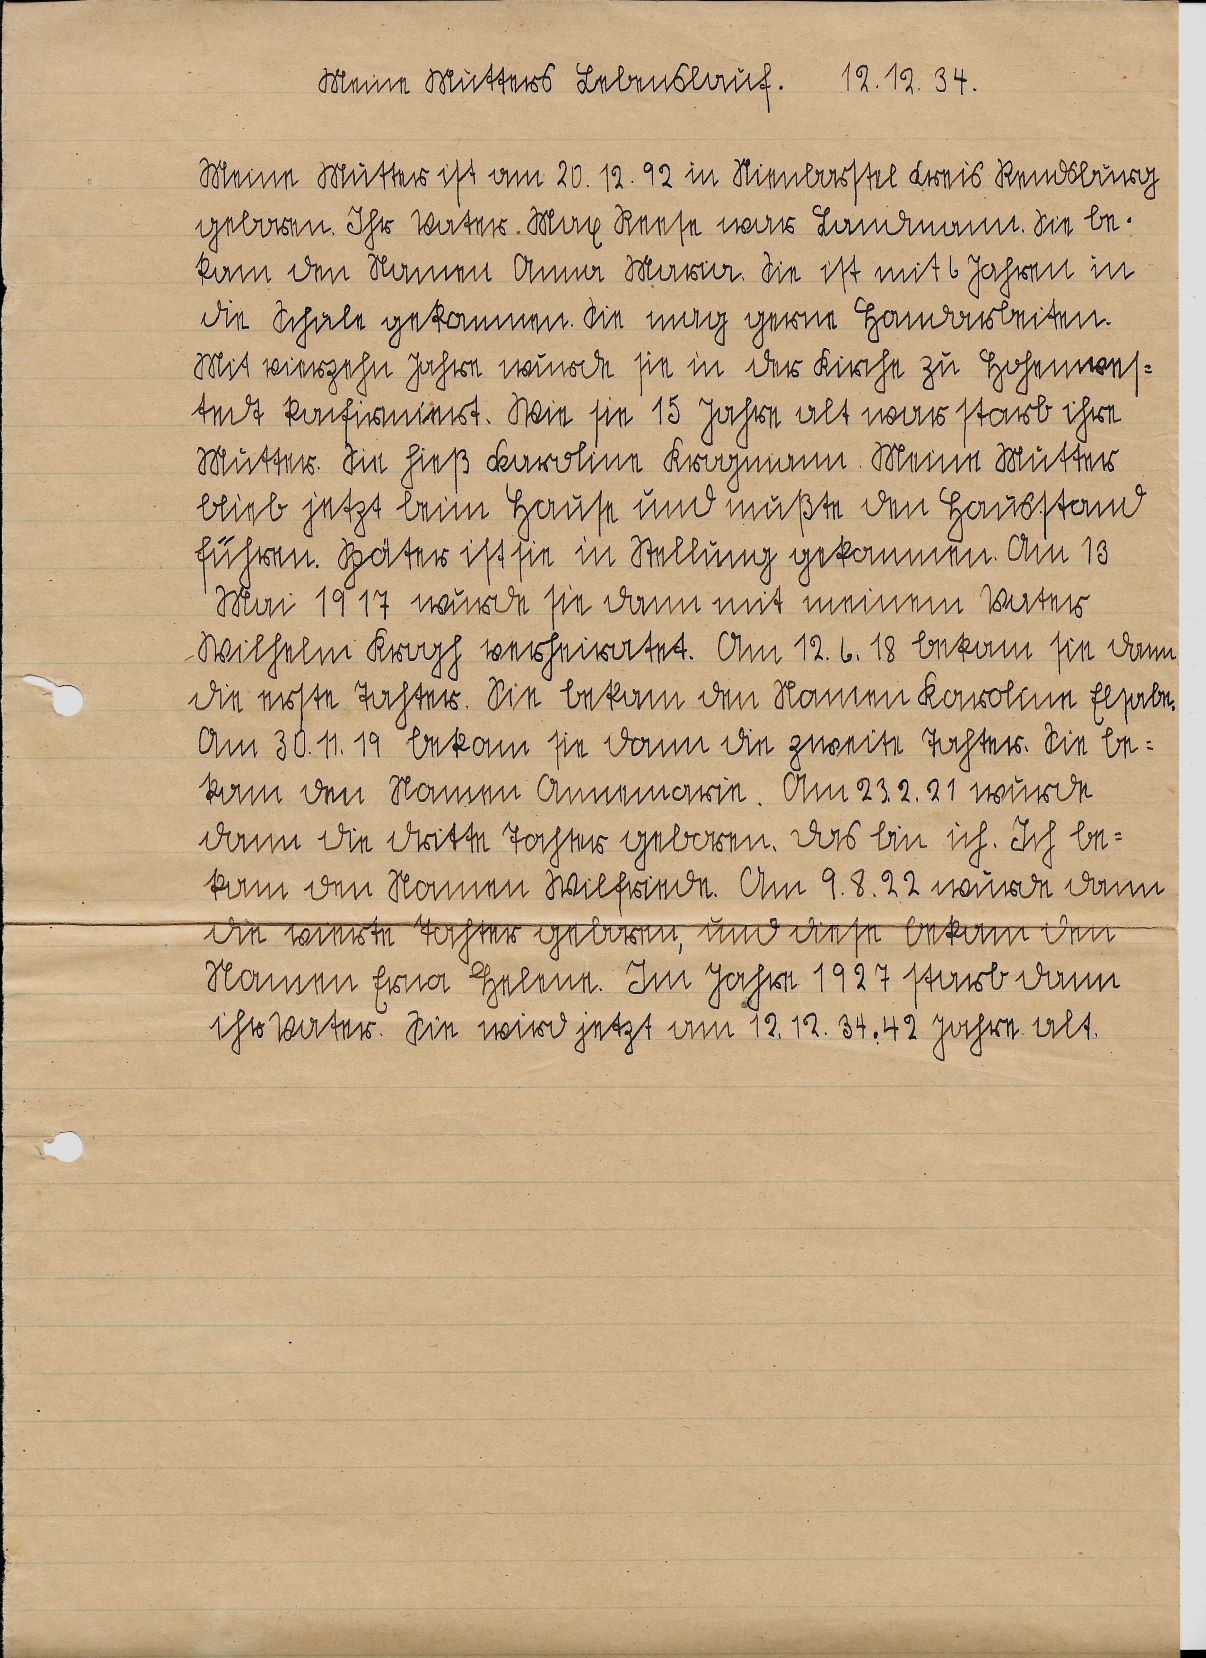 Meine Mutters Lebenslauf. 12.12.34.
Meine Mutter ist am 20.12.92 in Nienborstel Kreis Rendsburg
geboren. Ihr Vater Max Reese war Landmann. Sie be-
kam den Namen Anna Maria. Sie ist mit 6 Jahren in
die Schule gekommen. Sie mag gerne Handarbeiten.
Mit vierzehn Jahre wurde sie in der Kirche zu Hohenwes=
tedt konfirmiert. Wie sie 15 Jahre alt war starb ihre
Mutter. Sie hieß Karoline Krogmann. Meine Mutter
blieb jetzt beim Hause und mußte den Hausstand
führen. Später ist sie in Stellung gekommen. Am 13
Mai 1917 wurde sie dann mit meinem Vater
Wilhelm Kragh verheiratet. Am 12.6.18 bekam sie dann
die erste Tochter. Sie bekam den Namen Karoline Elsabe.
Am 30.11.19 bekam sie dann die zweite Tochter. Sie be=
kam den Namen Annemarie. Am 23.2.21 wurde
dann die dritte Tochter geboren. Das bin ich. Ich be=
kam den Namen Wilfriede. Am 9.8.22 wurde dann
die vierte Tochter geboren, und diese bekam den
Namen Erna Helene. Im Jahre 1927 starb dann
ihr Vater. Sie wird jetzt am 12.12.34. 42 Jahre alt.